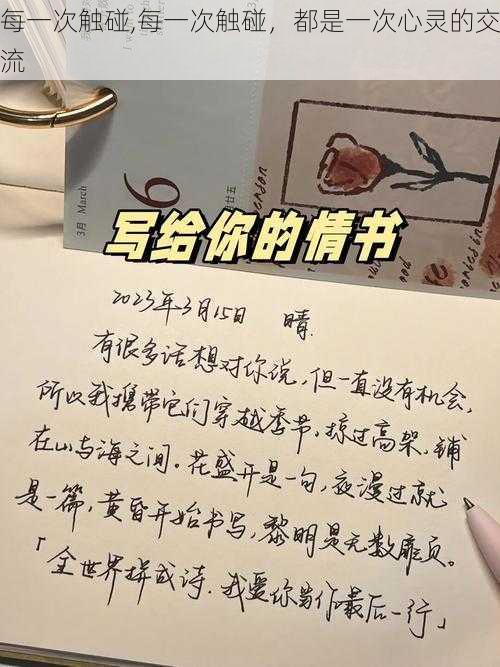 每一次触碰,每一次触碰，都是一次心灵的交
流
3月 March
6
廿五
写给你的情书
2023年3月15日 晴.
有很多话想对你说，但一直没有机会，
所以我携带它们穿越季节，掠过高架，铺
在山与海之间。花盛开是一句，夜漫过就
是一篇，黄昏开始书写，黎明是无数扉页。
「全世界拼成诗.我爱你当作最后一行」